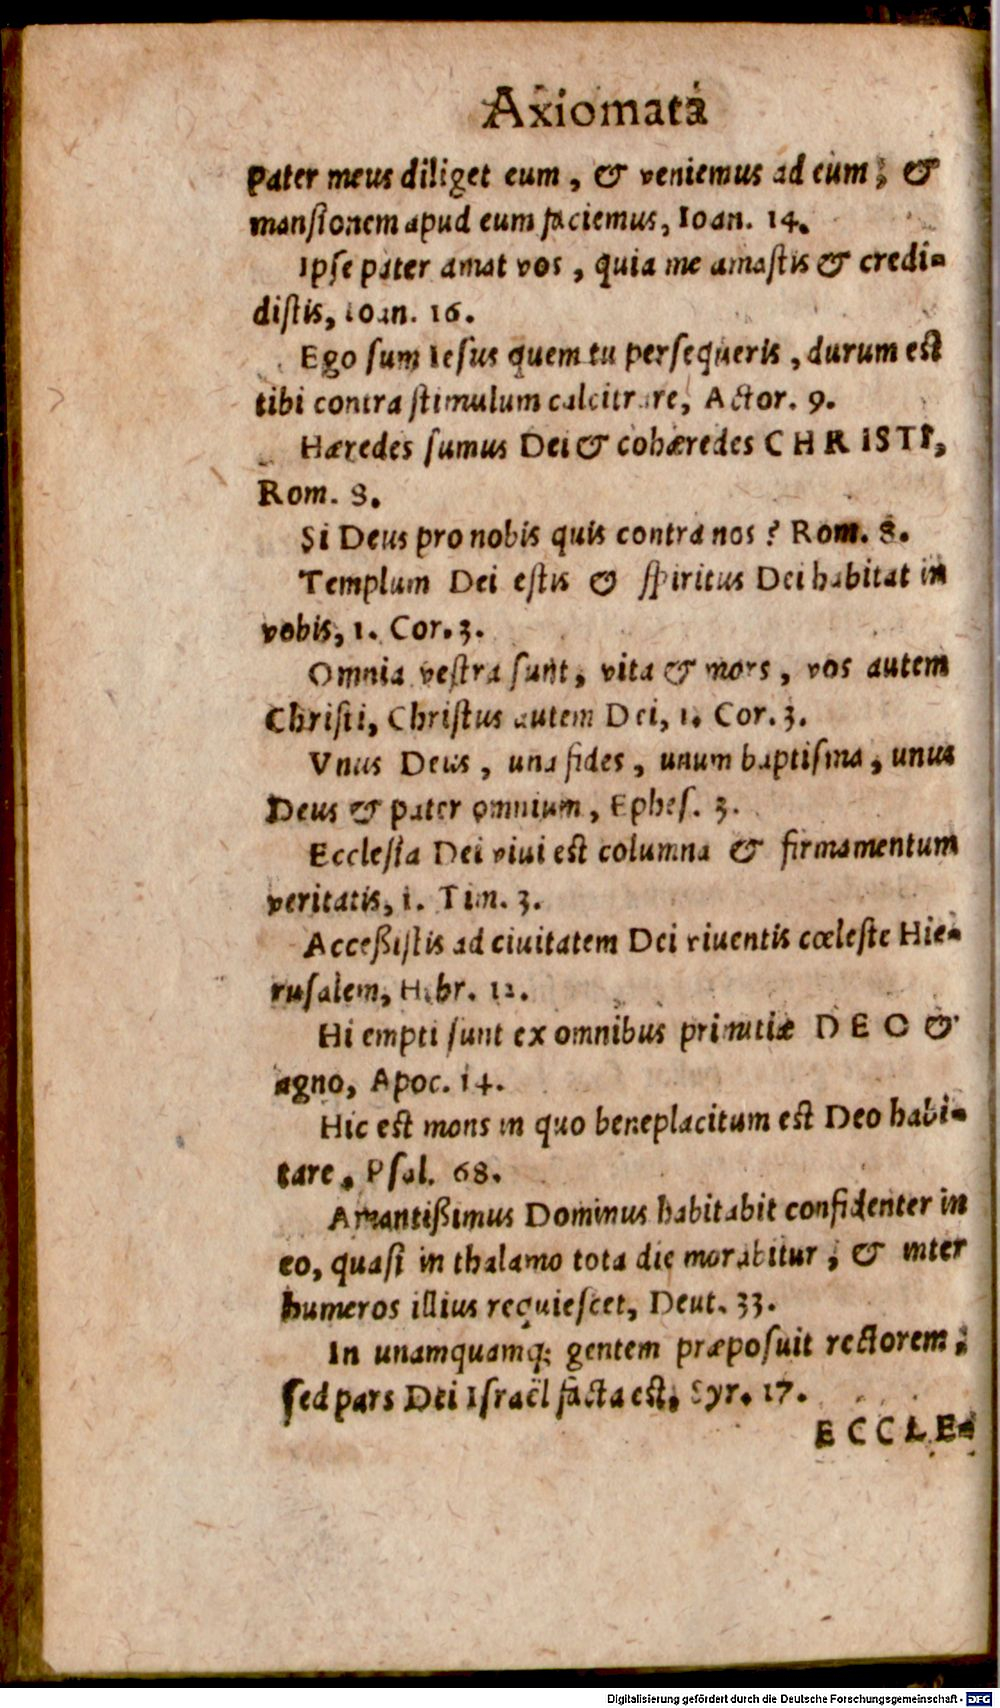 Axiomata
pater meus diliget eum, & veniemus ad eum; &
mansionem apud eum faciemus, Ioan. 14.
Ipse pater amat vos, quia me amastis & credi-
distis, Ioan. 16.
Ego sum Iesus quem tu persequeris, durum est
tibi contra stimulum calcitrare, Actor. 9.
Hæredes sumus Dei & cohæredes CHRISTI,
Rom. 8.
Si Deus pro nobis quis contra nos? Rom. 8.
Templum Dei estis & spiritus Dei habitat in
vobis, 1. Cor. 3.
Omnia vestra sunt, vita & mors, vos autem
Christi, Christus autem Dei, 1. Cor. 3.
Vnus Deus, una fides, unum baptisma, unus
Deus & pater omnium, Ephes. 3.
Ecclesia Dei viui est columna & firmamentum
veritatis, 1. Tim. 3.
Acceßistis ad ciuitatem Dei viuentis cœleste Hie-
rusalem, Hebr. 12.
Hi empti sunt ex omnibus primitiæ DEO &
agno, Apoc. 14.
Hic est mons in quo beneplacitum est Deo habi-
tare, Psal. 68.
Amantißimus Dominus habitabit confidenter in
eo, quasi in thalamo tota die morabitur, & inter
humeros illius requiescet, Deut. 33.
In unamquamq; gentem præposuit rectorem;
sed pars Dei Israël facta est, Syr. 17.
ECCLE-
Digitalisierung gefördert durch die Deutsche Forschungsgemeinschaft - DFG